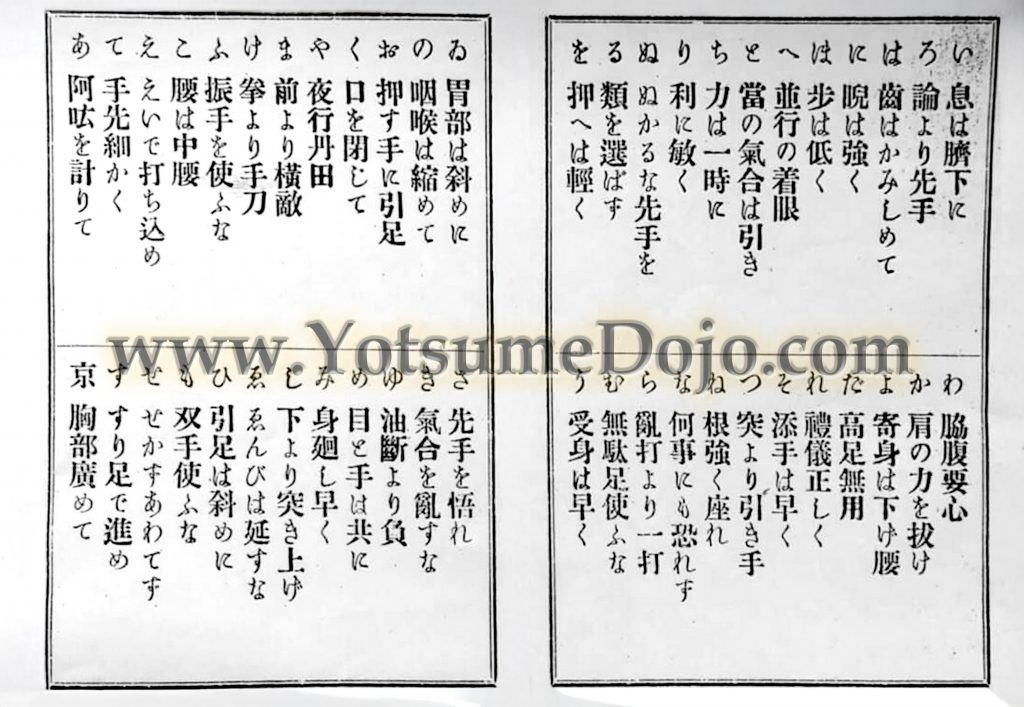 い 息は臍下に
ろ 論より先手
は 齒はかみしめて
に 睨は強く
ほ 歩は低く
へ 並行の着眼
と 當の氣合は引き
ち 力は一時に
り 利に敏く
ぬ ぬかるな先手を
る 類を選ばず
を 押へは輕く
わ 脇腹要心
か 肩の力を拔け
よ 寄身は下け腰
た 高足無用
れ 禮儀正しく
そ 添手は早く
つ 突より引き手
ね 根強く座れ
な 何事にも恐れず
ら 亂打より一打
む 無駄足使ふな
う 受身は早く
ゐ 胃部は斜めに
の 咽喉は縮めて
お 押す手に引足
く 口を閉じて
や 夜行丹田
ま 前より橫敵
け 拳より手刀
ふ 振手を使ふな
こ 腰は中腰
え えいで打ち込め
て 手先細かく
あ 阿吽を計りて
さ 先手を悟れ
き 氣合を亂すな
ゆ 油斷より負
め 目と手は共に
み 身廻し早く
し 下より突き上げ
ゑ ゑんぴは延すな
ひ 引足は斜めに
も 双手使ふな
せ せかずあわてず
す すり足で進め
京 胸部廣めて
www.YotsumeDojo.com